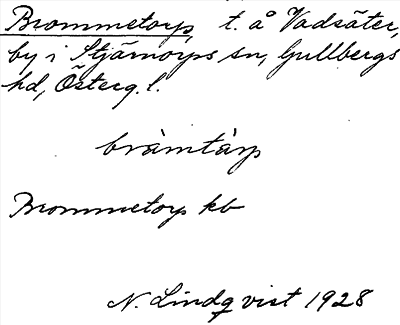 Brommetorp, t. å Vadsäter,
by i Stjärnorps sn, Gullbergs
hd, Österg. l.
bràmtàrp
Brommetorp kb
N. Lindqvist 1928